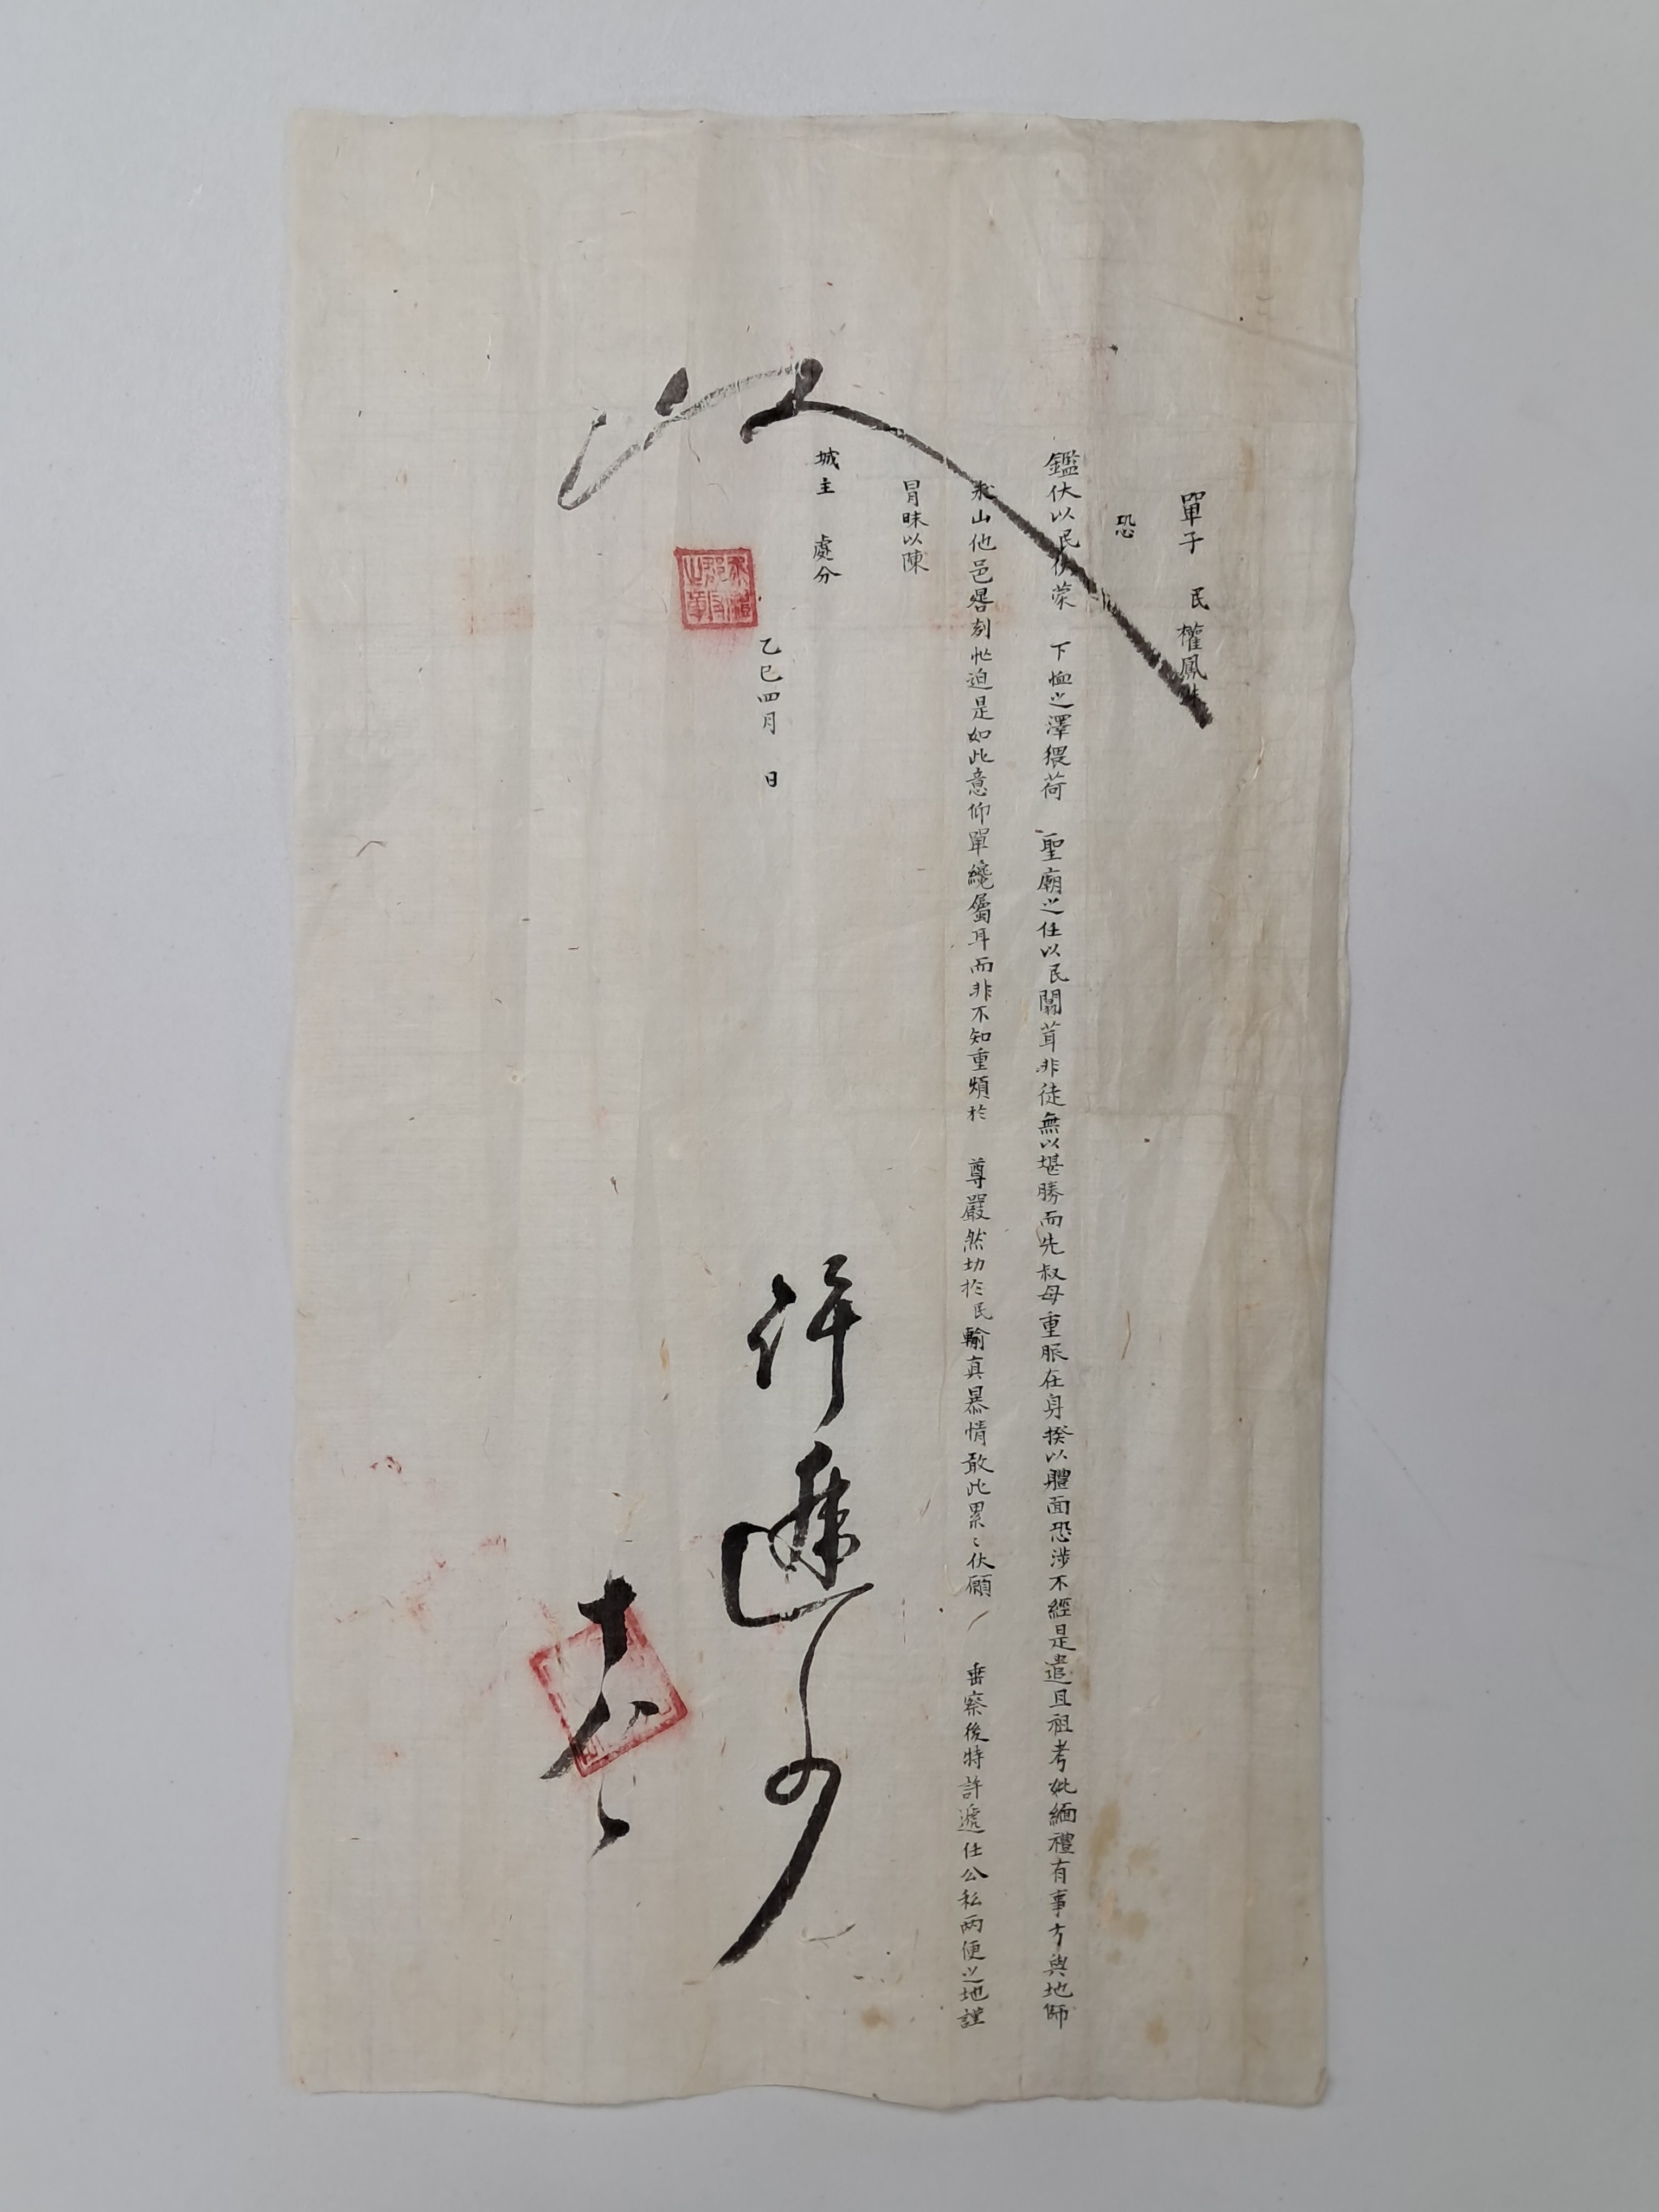 單子 民 權鳳
恐
鑑伏以民伏蒙 下恤之澤猥荷 聖廟之任以民闒茸非徒無以堪勝而先叔母重服在身揆以體面恐涉不經是遣且祖考妣緬禮有事方與地師
求山他邑晷刻忙迫是如此意仰單纔屬耳而非不知重煩於 尊嚴然切於民輸眞暴情敢此累〻伏願 垂察後特許遞任公私兩便之地謹
冒昧以陳
城主 處分
乙巳四月 日
許遞向
十八